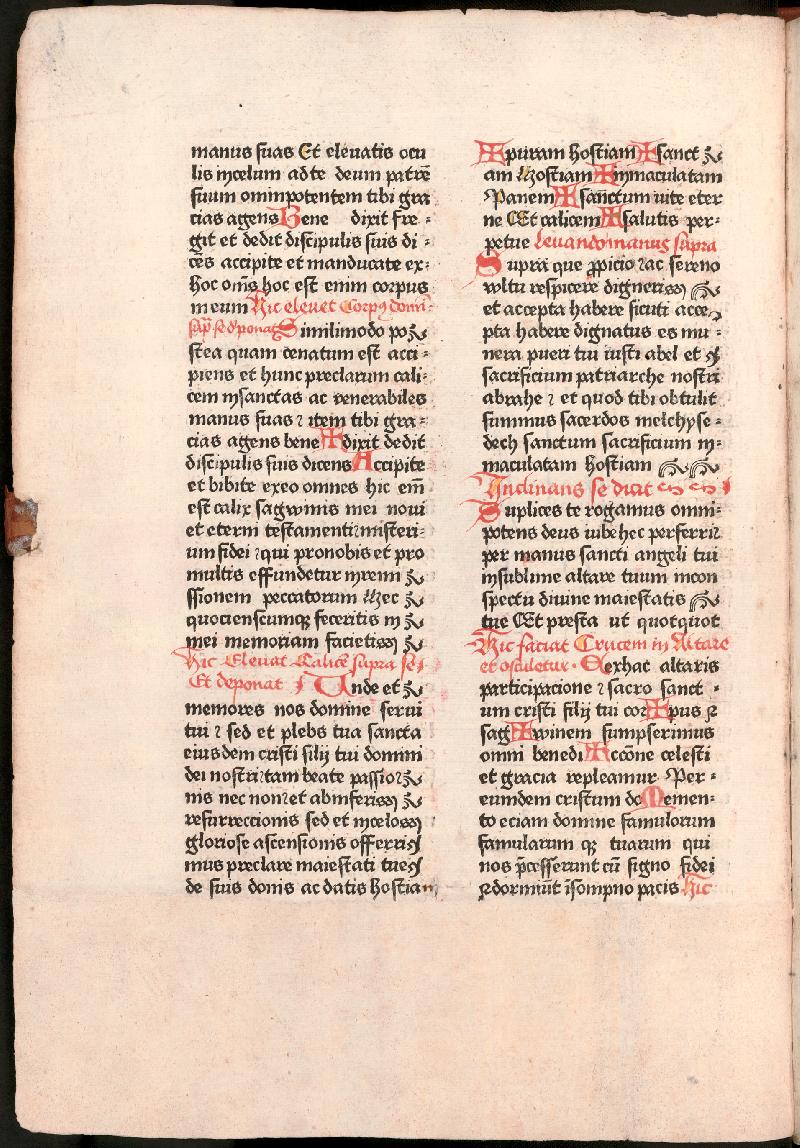 manus suas Et eleuatis ocu
lis incelum adte deum patrē
suum ominpotentem tibi gra
cias agens Bene dixit fre-
git et dedit discipulis suis di-
cēs accipite et manducate ex-
hoc om̄s hoc est enim corpus
meum Hic eleuet Corpꝰ domi-
Similimodo po
stea quam cenatum est acci-
piens et hunc preclarum cali-
cem insanctas ac venerabiles
manus suas ⁊ item tibi gra-
cias agens bene ✠ dixit dedit
discipulis suis dicens Accipite
et bibite exeo omnes hic em̄
est calix sagwinis mei noui
et eterni testamenti ⁊ misteri-
um fidei ⁊ qui pronobis et pro
multis effundetur inremi
ssionem peccatorum Hec
quocienscumqꝫ feceritis in
mei memoriam facietis
Hic Eleuat Calicē supra se
Et deponat Unde et
memores nos domine serui
tui ⁊ sed et plebs tua sancta
eiusdem cristi filij tui domini
dei nostri ⁊ tam beate passio
nis nec non ⁊ et abinferis
resurreccionis sed et incelos
gloriose ascensionis offerri
mus preclare maiestati tue
de suis donis ac datis hostiam
✠ puram hostiam ✠ sanct
am Hostiam ✠ inmaculatam
Panem ✠ sanctum uite eter
ne Et calicem ✠ salutis per-
petue leuando manus supra
Supra que ꝓpicio ⁊ ac sereno
wltu respicere digneris
et accepta habere sicuti acce
pta habere dignatus es mu-
nera pueri tui iusti abel et
sacrificium patriarche nostri
abrahe ⁊ et quod tibi obtulit
summus sacerdos melchyse-
dech sanctum sacrificium in-
maculatam hostiam
Inclinans se dicit
Suplices te rogamus omni-
potens deus iube hec perferri
per manus sancti angeli tui
insublime altare tuum incon
spectu diuine maiestatis
tue Et presta ut quotquot
Hic faciat Crucem in Altare
et osculetur. exhac altaris
participacione ⁊ sacro sanct -
um cristi filij tui cor ✠ pus ⁊
sag ✠ winem sumpserimus
omni benedi ✠ ccōne celesti
et gracia repleamur Per-
eumdem cristum do Memen-
to eciam domine famulorum
famularum qꝫ tuarum qui
nos p̄cesserunt cū signo fidei
⁊ dormiūt īsompno pacis Hic